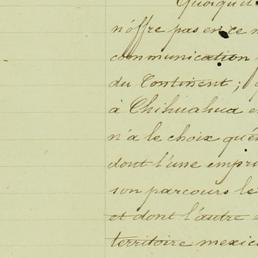 Quoiqu'il
n'offre pas en ce m
communication
du Continent;
à Chihuahua e
n'a le choix qu'e
dont l'une empr
son parcours le
et dont l'autre
territoire mexic